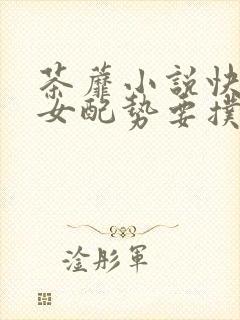 荼蘼小説快
女配勢要撲
淦彤軍